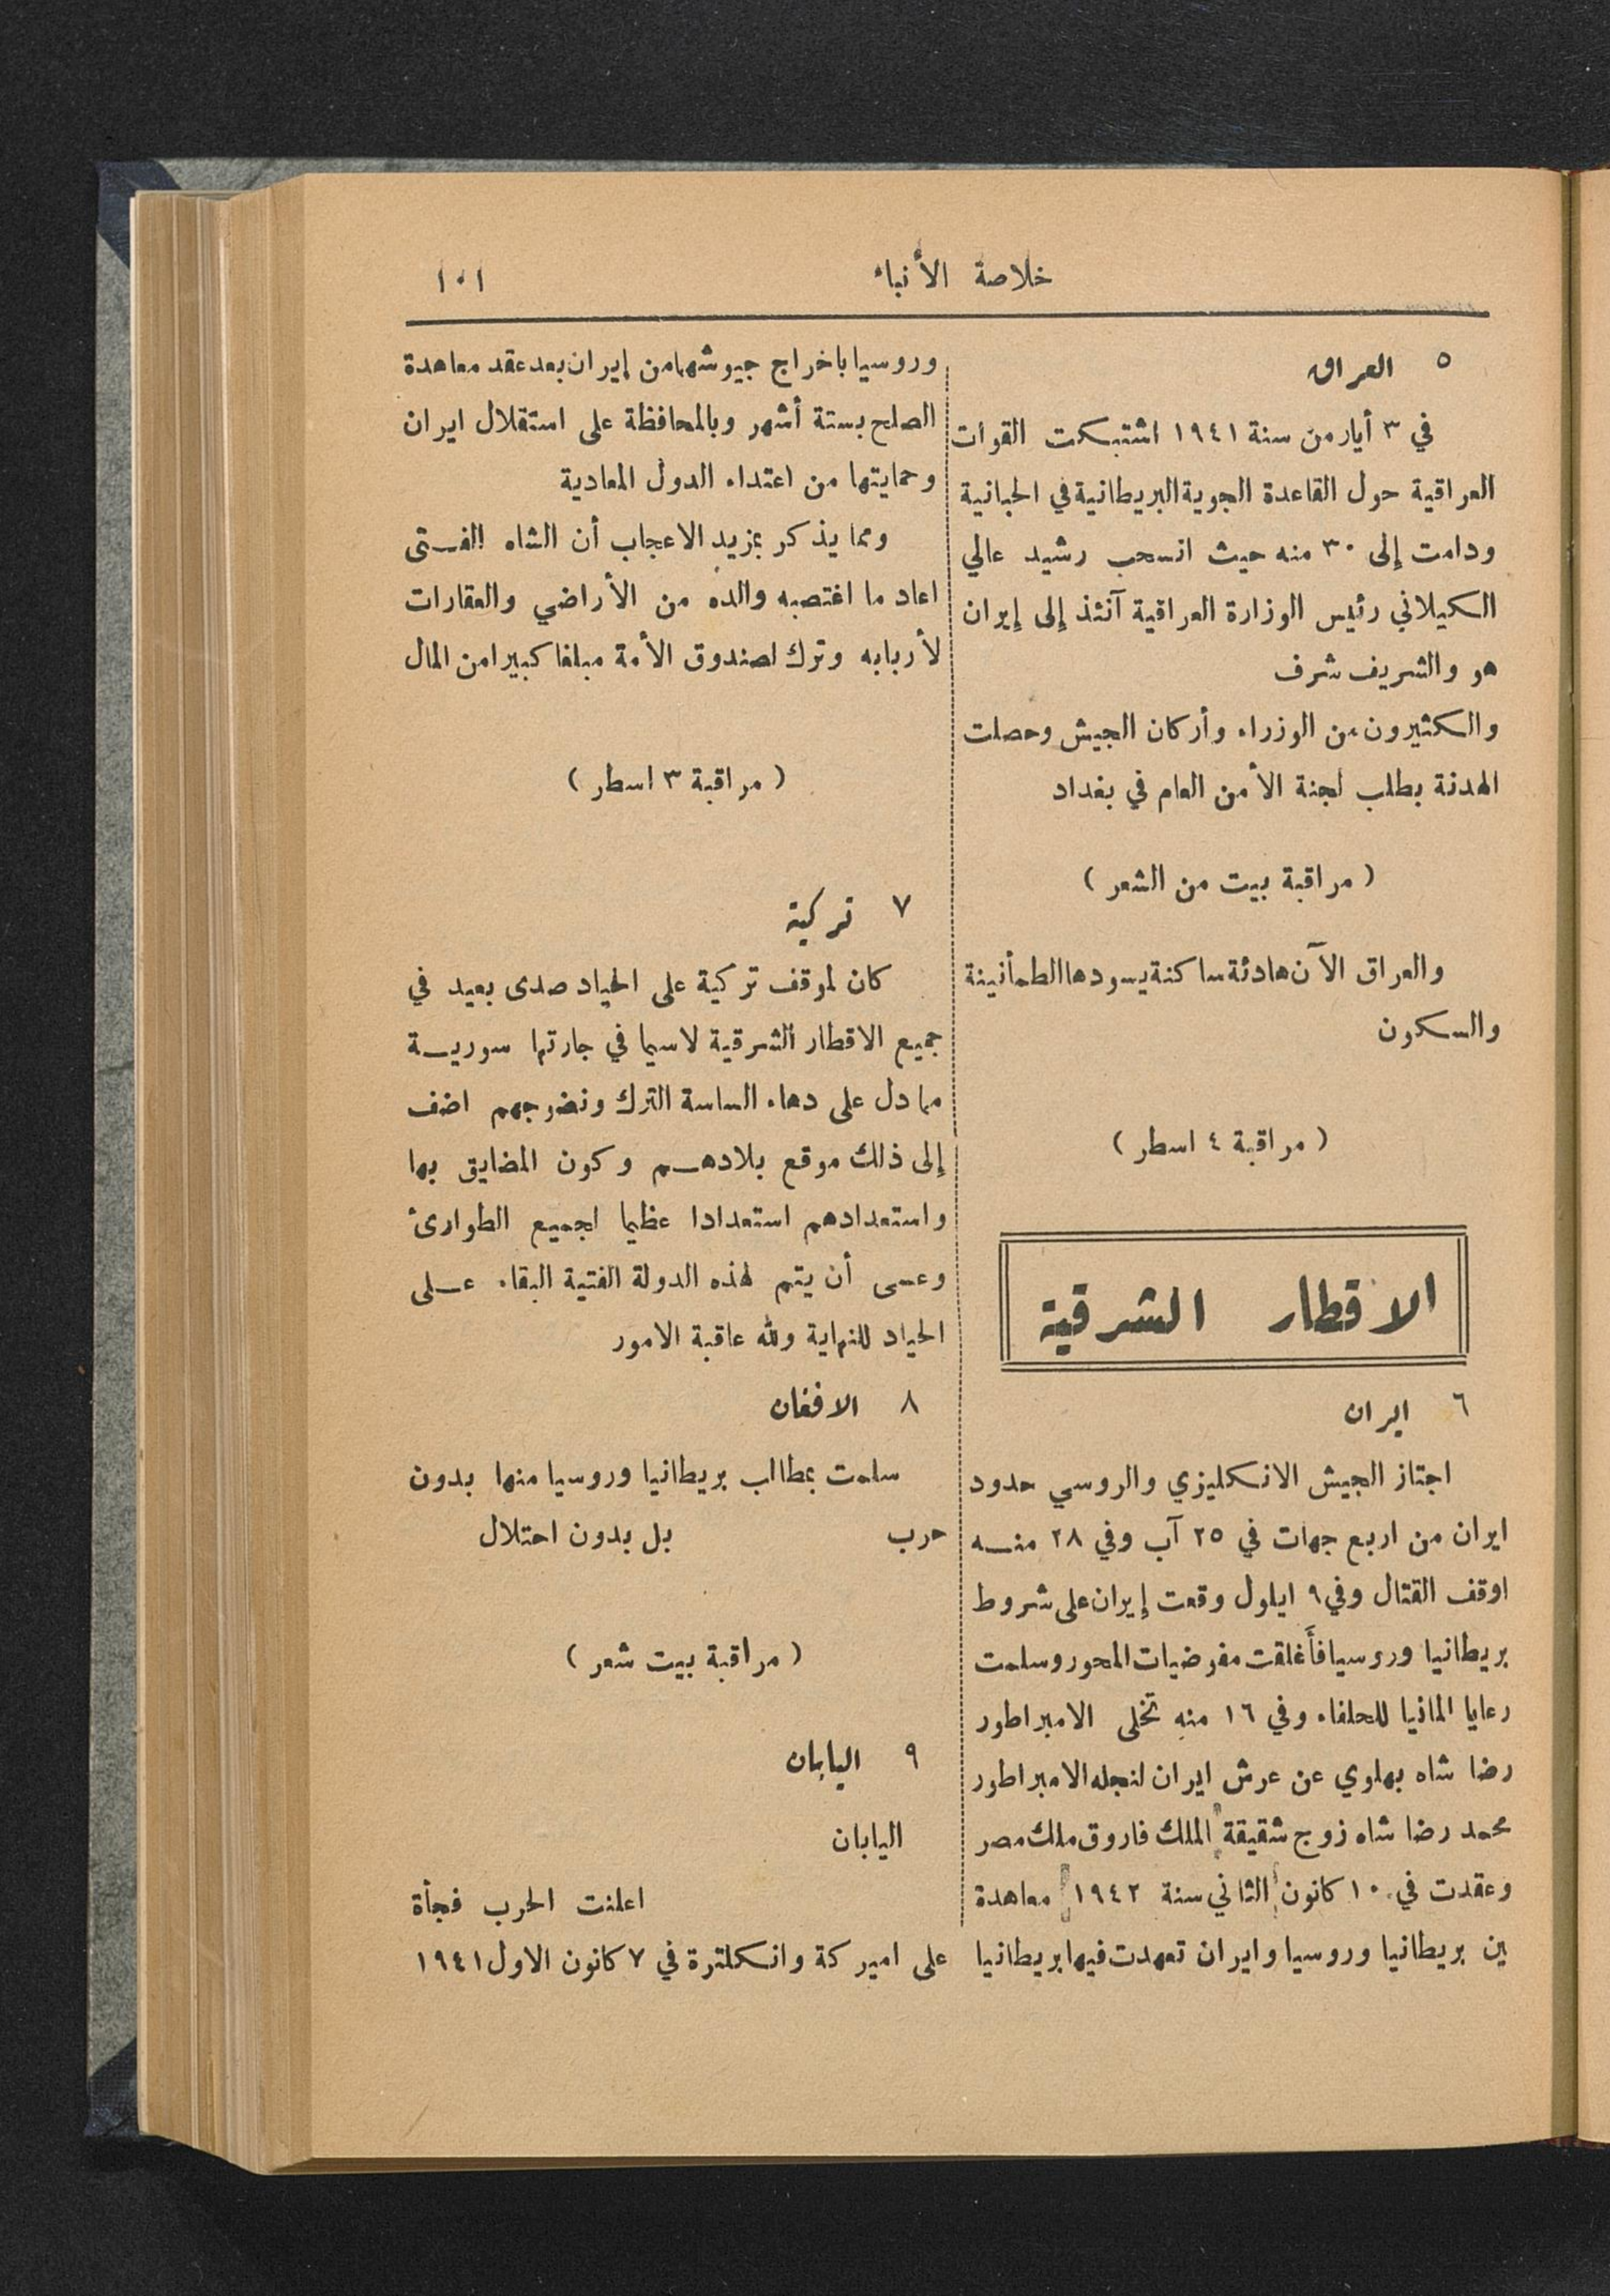 خلاصة الأنباء
١٠١
٥ العراق
في ٣ أيار من سنة ١٩٤١ اشتبكت القوات
العراقية حول القاعدة الجوية البريطانية في الحبانية
ودامت إلى ٣٠ منه حيث انسحب رشيد عالي
الكيلاني رئيس الوزارة العراقية آنئذ إلى إيران
هو والشريف شرف
والكثيرون من الوزراء وأركان الجيش وحصلت
الهدنة بطلب لجنة الأمن العام في بغداد
( مراقبة بيت من الشعر )
والعراق الآن هادئة ساكنة يسودها الطمأنينة
والسكون
( مراقبة ٤ اسطر )
الاقطار الشرقية
٦ ايران
اجتاز الجيش الانكليزي والروسي حدود
ايران من اربع جهات في ٢٥ آب وفي ٢٨ منه
اوقف القتال وفي ٩ ايلول وقعت إيران على شروط
بريطانيا وروسيا فأغلقت مفوضيات المحور وسلمت
رعايا المانيا للحلفاء وفي ١٦ منه تخلى الامبراطور
رضا شاه بهلوي عن عرش ايران لنجله الامبراطور
محمد رضا شاه زوج شقيقة الملك فاروق ملك مصر
وعقدت في ١٠ كانون الثاني سنة ١٩٤٢ معاهدة
بين بريطانيا وروسيا وايران تعهدت فيها بريطانيا
وروسيا باخراج جيوشهما من إيران بعد عقد معاهدة
الصلح بستة أشهر وبالمحافظة على استقلال ايران
وحمايتها من اعتداء الدول المعادية
ومما يذكر بمزيد الاعجاب أن الشاه الفتى
اعاد ما اغتصبه والده من الأراضي والعقارات
لأربابه وترك لصندوق الأمة مبلغا كبيرا من المال
( مراقبة ٣ اسطر )
٧ تركية
كان لموقف تركية على الحياد صدى بعيد في
جميع الاقطار الشرقية لاسيما في جارتها سورية
مما دل على دهاء الساسة الترك ونضوجهم اضف
إلى ذلك موقع بلادهم وكون المضايق بها
واستعدادهم استعدادا عظيما لجميع الطوارئ
وعسى أن يتم لهذه الدولة الفتية البقاء على
الحياد للنهاية ولله عاقبة الامور
٨ الافغان
سلمت بمطالب بريطانيا وروسيا منها بدون
حرب بل بدون احتلال
( مراقبة بيت شعر )
٩ اليابان
اليابان
اعلنت الحرب فجأة
على اميركة وانكلترة في ٧ كانون الاول ١٩٤١